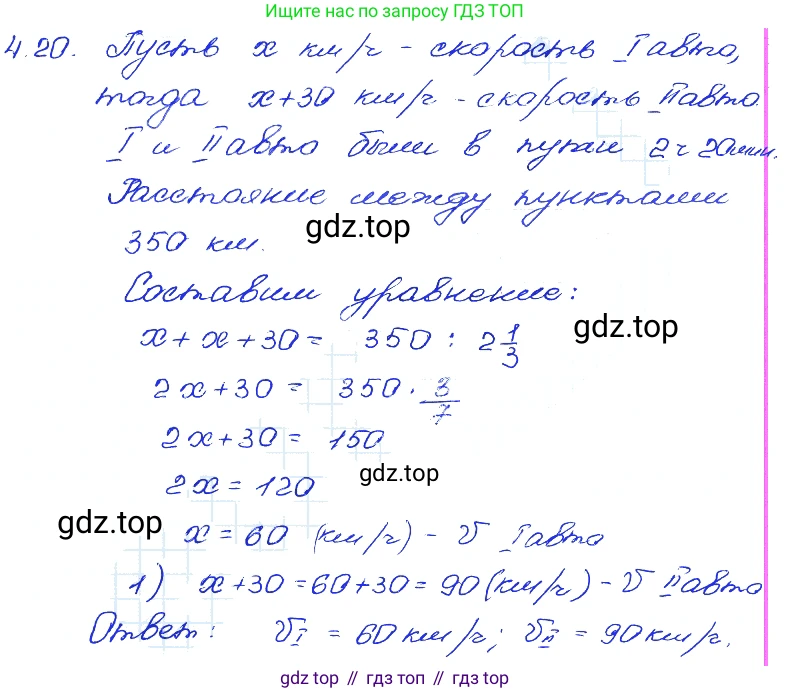 Ищите нас по запросу ГДЗ ТОП
4.20. Пусть x км/ч - скорость I авто,
тогда x+30 км/ч - скорость II авто.
I и II авто были в пути 2 ч 20 мин.
Расстояние между пунктами
gdz.top
350 км.
Составим уравнение:
x + x + 30 = 350 : 2 1/3
gdz.top
2x + 30 = 350 · 3/7
2x + 30 = 150
gdz.top
2x = 120
gdz.top
x = 60 (км/ч) - V I авто
1) x+30 = 60+30 = 90 (км/ч) - V II авто
Ответ: V I = 60 км/ч; V II = 90 км/ч.
gdz top // гдз топ // gdz top